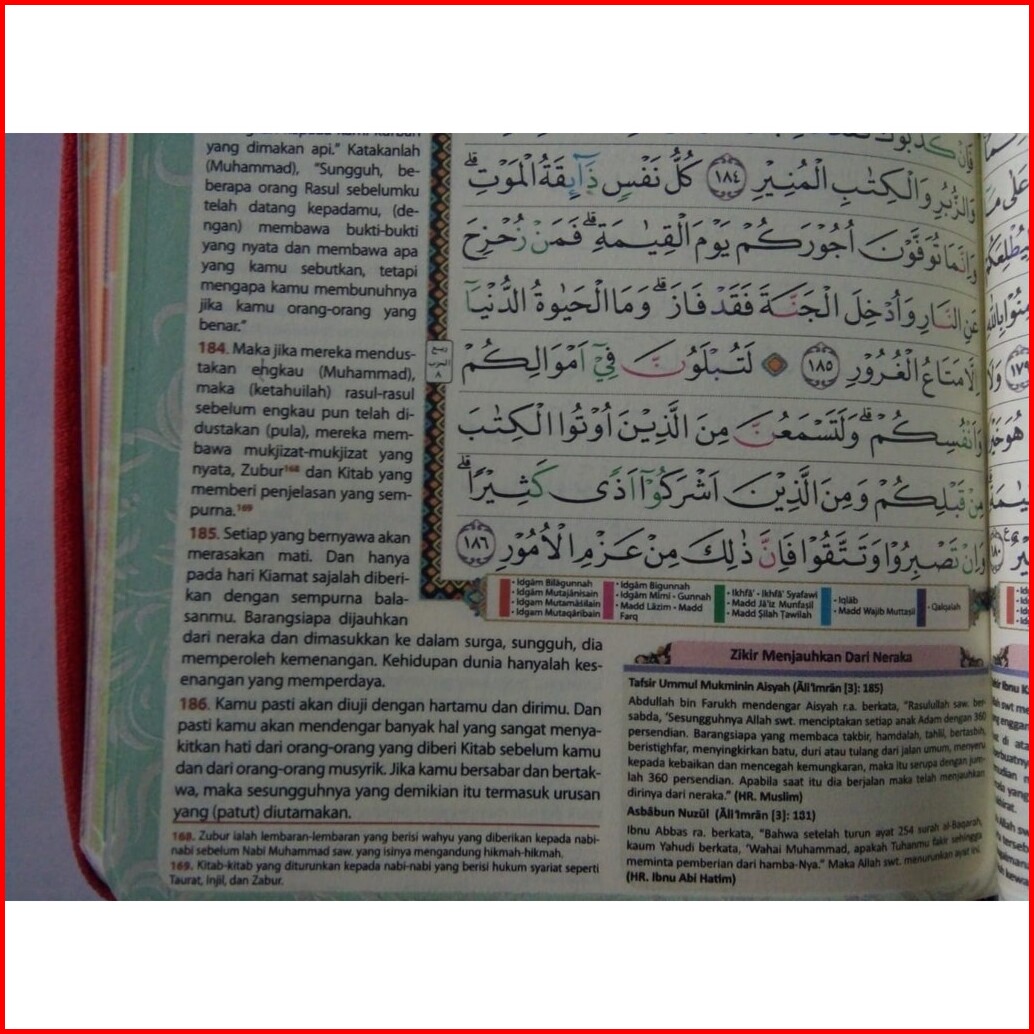 yang dimakan api." Katakanlah
(Muhammad), "Sungguh, be-
berapa orang Rasul sebelumku
telah datang kepadamu, (de-
ngan) membawa bukti-bukti
yang nyata dan membawa apa
yang kamu sebutkan, tetapi
mengapa kamu membunuhnya
jika kamu orang-orang yang
benar."
184. Maka jika mereka mendus-
takan engkau (Muhammad),
maka (ketahuilah) rasul-rasul
sebelum engkau pun telah di-
dustakan (pula), mereka mem-
bawa mukjizat-mukjizat yang
nyata, Zubur168 dan Kitab yang
memberi penjelasan yang sem-
purna.169
185. Setiap yang bernyawa akan
merasakan mati. Dan hanya
pada hari Kiamat sajalah diberi-
kan dengan sempurna bala-
sanmu. Barangsiapa dijauhkan
dari neraka dan dimasukkan ke dalam surga, sungguh, dia
memperoleh kemenangan. Kehidupan dunia hanyalah kes-
enangan yang memperdaya.
186. Kamu pasti akan diuji dengan hartamu dan dirimu. Dan
pasti kamu akan mendengar banyak hal yang sangat menya-
kitkan hati dari orang-orang yang diberi Kitab sebelum kamu
dan dari orang-orang musyrik. Jika kamu bersabar dan bertak-
wa, maka sesungguhnya yang demikian itu termasuk urusan
yang (patut) diutamakan.
168. Zubur ialah lembaran-lembaran yang berisi wahyu yang diberikan kepada nabi-
nabi sebelum Nabi Muhammad saw. yang isinya mengandung hikmah-hikmah.
169. Kitab-kitab yang diturunkan kepada nabi-nabi yang berisi hukum syariat seperti
Taurat, Injil, dan Zabur.
وَالزُّبُرِ وَالْكِتٰبِ الْمُنِيْرِ ﴿١٨٤﴾ كُلُّ نَفْسٍ ذَاۤىِٕقَةُ الْمَوْتِۗ
وَاِنَّمَا تُوَفَّوْنَ اُجُوْرَكُمْ يَوْمَ الْقِيٰمَةِۗ فَمَنْ زُحْزِحَ
عَنِ النَّارِ وَاُدْخِلَ الْجَنَّةَ فَقَدْ فَازَۗ وَمَا الْحَيٰوةُ الدُّنْيَآ
اِلَّا مَتَاعُ الْغُرُوْرِ ﴿١٨٥﴾ لَتُبْلَوُنَّ فِيْٓ اَمْوَالِكُمْ
وَاَنْفُسِكُمْۗ وَلَتَسْمَعُنَّ مِنَ الَّذِيْنَ اُوْتُوا الْكِتٰبَ
مِنْ قَبْلِكُمْ وَمِنَ الَّذِيْنَ اَشْرَكُوْٓا اَذًى كَثِيْرًاۗ
وَاِنْ تَصْبِرُوْا وَتَتَّقُوْا فَاِنَّ ذٰلِكَ مِنْ عَزْمِ الْاُمُوْرِ ﴿١٨٦﴾
ربع
الحزب
٨
• Idgām Bilāgunnah
• Idgām Mutajānisain
• Idgam Mutamāšilain
• Idgam Mutaqāribain
• Idgām Bigunnah
• Idgām Mimi - Gunnah
• Madd Lāzim - Madd
Farq
• Ikhfā' - Ikhfā' Syafawi
• Madd Jā'iz Munfasil
• Madd Şilah Ţawilah
• Iqlāb
• Madd Wajib Muttasil
• Qalqalah
Zikir Menjauhkan Dari Neraka
Tafsir Ummul Mukminin Aisyah (Āli'Imrān [3]: 185)
Abdullah bin Farukh mendengar Aisyah r.a. berkata, "Rasulullah saw. ber-
sabda, 'Sesungguhnya Allah swt. menciptakan setiap anak Adam dengan 360
persendian. Barangsiapa yang membaca takbir, hamdalah, tahlil, bertasbih,
beristighfar, menyingkirkan batu, duri atau tulang dari jalan umum, menyeru
kepada kebaikan dan mencegah kemungkaran, maka itu serupa dengan jum-
lah 360 persendian. Apabila saat itu dia berjalan maka telah menjauhkan
dirinya dari neraka." (HR. Muslim)
Asbābun Nuzūl (Āli'Imrān [3]: 181)
Ibnu Abbas ra. berkata, "Bahwa setelah turun ayat 254 surah al-Baqarah,
kaum Yahudi berkata, 'Wahai Muhammad, apakah Tuhanmu fakir sehingga
meminta pemberian dari hamba-Nya." Maka Allah swt. menurunkan ayat ini.
(HR. Ibnu Abi Hatim)